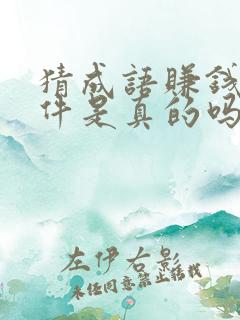 猜成語賺錢
件是真的吗
左伊右影
未经同意禁止转载